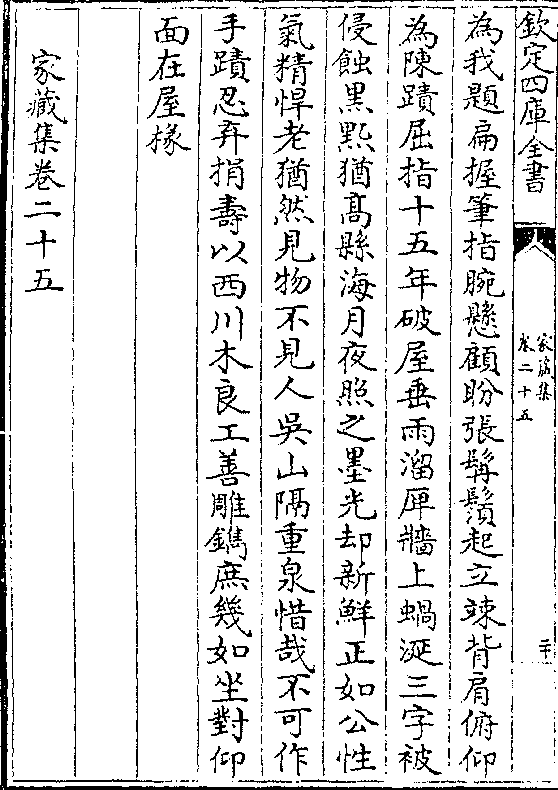 欽定四庫全書
家藏集
卷二十五
二十
為我題扁握筆指腕懸顧盼張髯鬚起立竦背肩俯仰
為陳蹟屈指十五年破屋垂雨溜厓牆上蝸涎三字被
侵蝕黒㸃猶髙縣海月夜照之墨光却新鮮正如公性
氣精悍老猶然見物不見人吳山隔重泉惜哉不可作
手蹟忍弃捐壽以西川木良工善雕鐫庶幾如坐對仰
面在屋椽
家藏集卷二十五